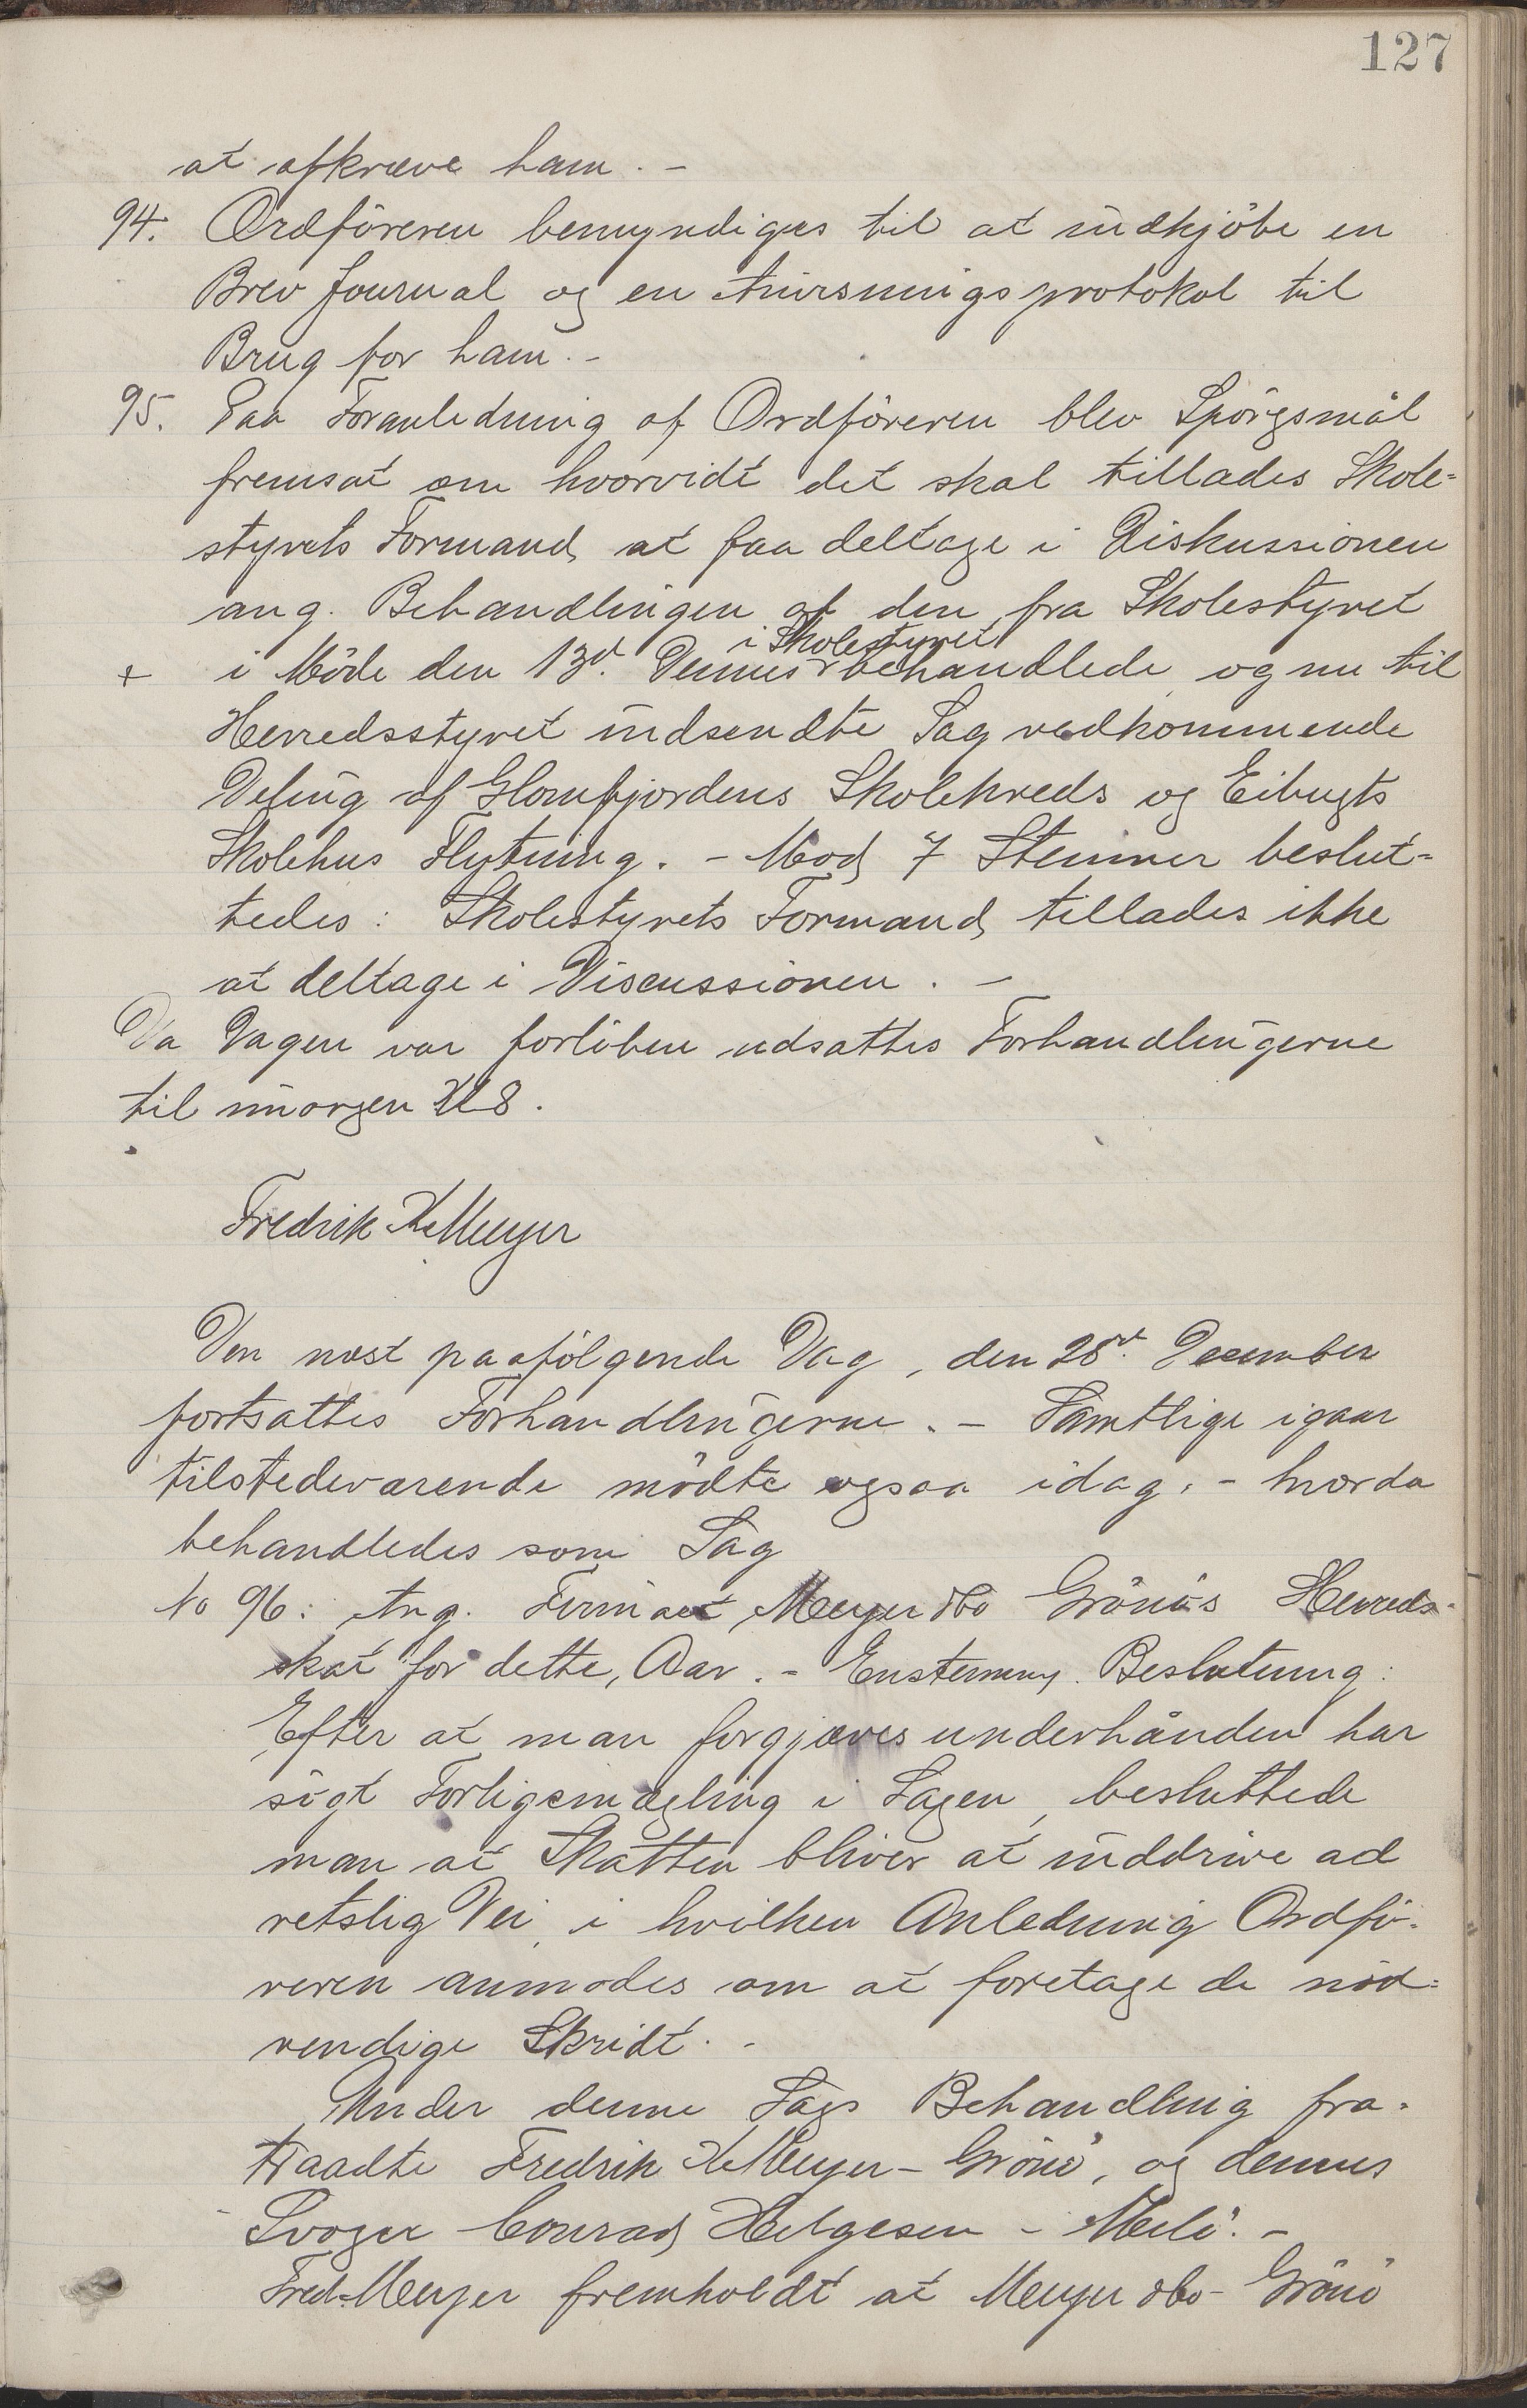 127
at afkræve ham. -
94. Ordföreren bemyndiges til at indkjöbe en
Brev Journal og en Anvisningsprotokol til
Brug for ham. -
95. Paa Foranledning af Ordföreren blev Spörgsmål
fremsat om hvorvidt det skal tillades Skole-
styrets Formand at faa deltage i Diskussionen
ang. Behandlingen af den fra Skolestyret
i Skolestyret
+ i Möde den 13d. Dennes behandlede og nu til
Herredsstyret indsendte Sag vedkommende
Deling af Glomfjordens Skolekreds og Eibugts
Skolehus Flytning. - Mod 7 Stemmer beslut-
tedes: Skolestyrets Formand tillades ikke
at deltage i Discussionen. -
Da Dagen var forlöben udsattes Forhandlingerne
til imorgen Kl 8.
Fredrik K Meyer
Den næst paafölgende Dag, den 28de. December
fortsattes Forhandlingerne. - Samtlige igaar
tilstedeværende mödte ogsaa idag, - hvorda
behandledes som Sag
No 96: Ang. Firmaet Meyer & Co Grönös Herreds-
skat for dette Aar. - Enstemmig Beslutning:
Efter at man forgjæves underhånden har
sögt Forligsmægling i Sagen, besluttede
man at Skatten bliver at inddrive ad
retslig Vei, i hvilken Anledning Ordfö-
reren anmodes om at foretage de nöd-
vendige Skridt. -
Under denne Sags Behandling fra-
traadte Fredrik K Meyer - Grönö, og dennes
Svoger Conrad Helgesen - Melö. -
Fred. Meyer fremholdt at Meyer & Co - Grönö